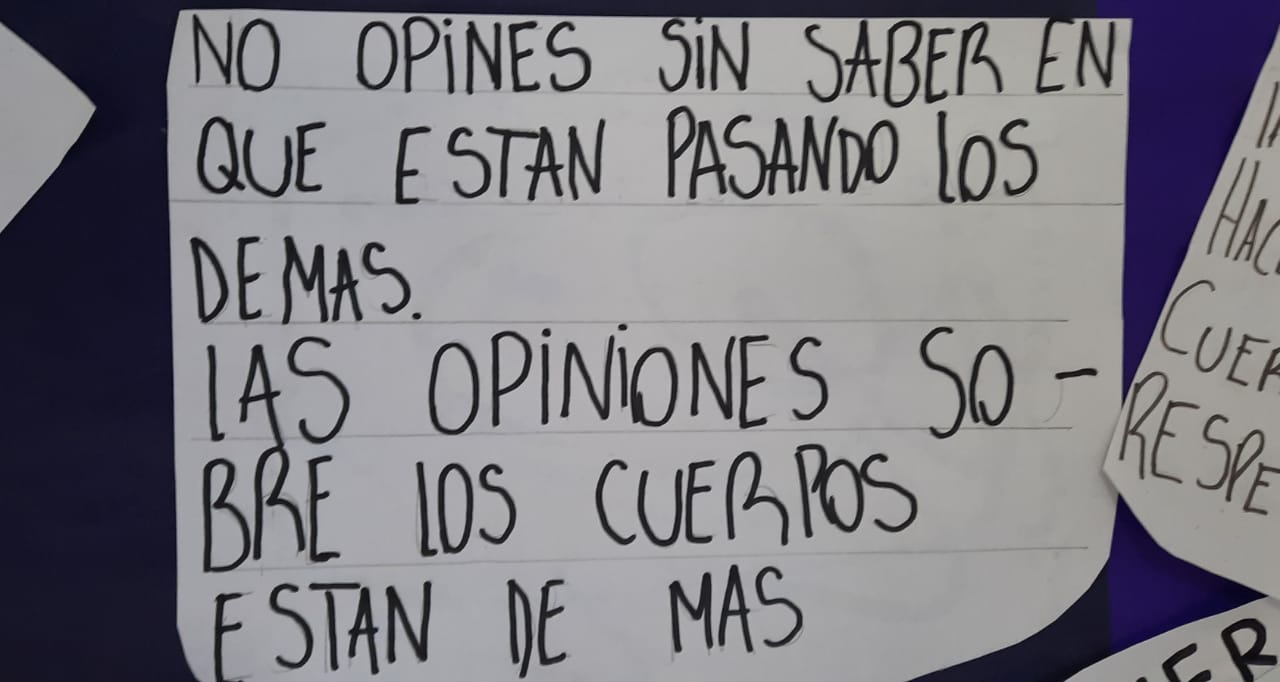 NO OPINES SIN SABER EN
QUE ESTAN PASANDO LOS
DEMAS.
LAS OPINIONES SO-
BRE LOS CUERPOS
ESTAN DE MAS